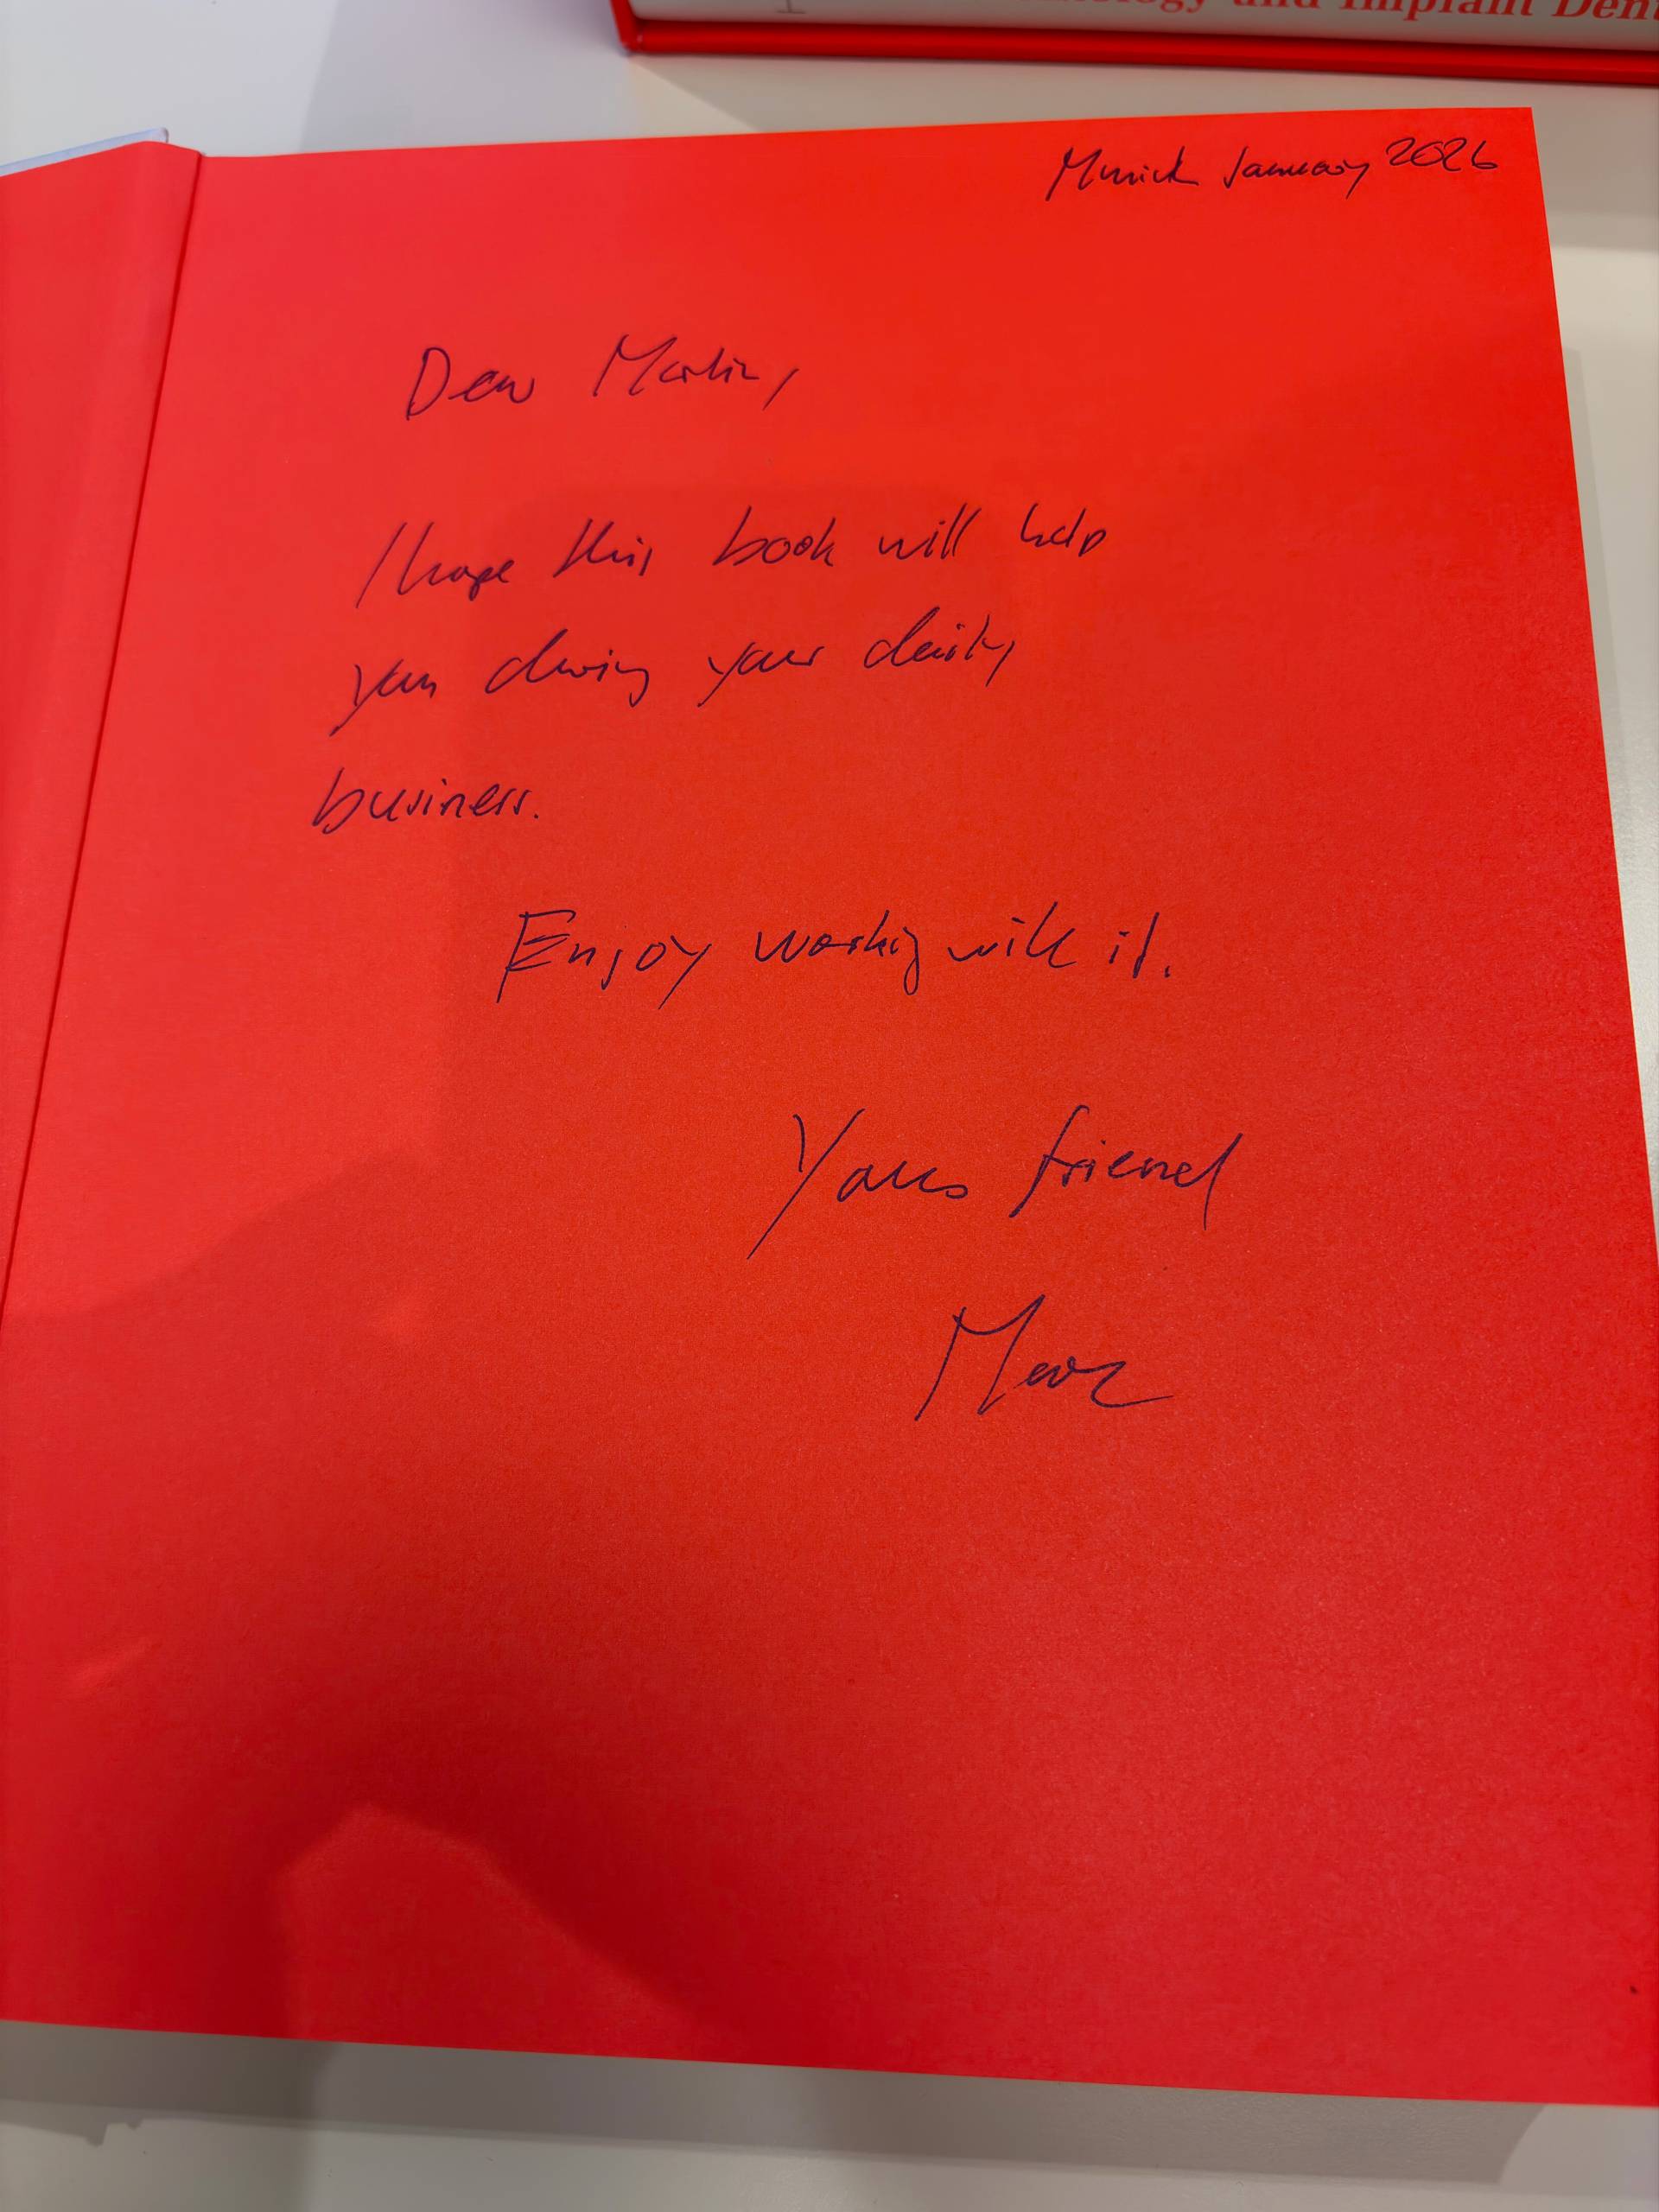 and Implant Dent
Munich January 2026
Dear Martin,
I hope this book will help
you during your daily
business.
Enjoy working with it.
Your friend
Marc